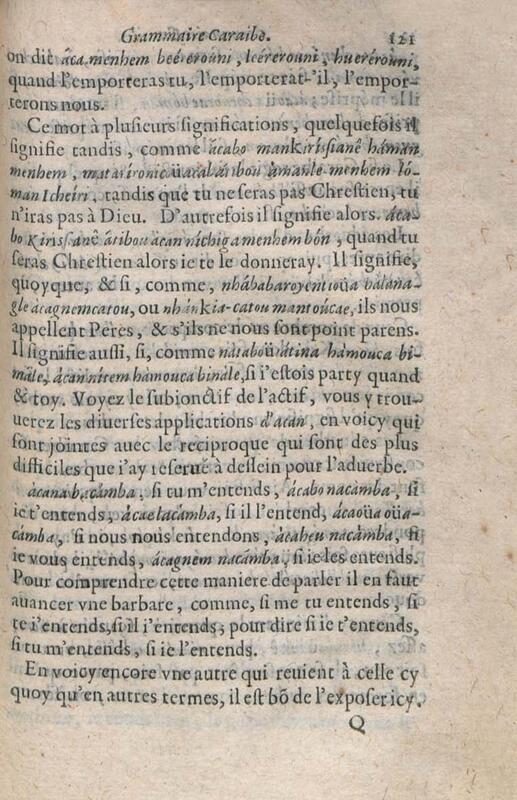 Grammaire Caraibe. 121
on dit áca menhem beérerouni, leérerouni, huerérouni,
quand l'emporteras tu, l'emporterat-il, l'empor-
terons nous.
Ce mot à plusieurs significations, quelquefois il
signifie tandis, comme ácabo mankirissianê háman
menhem, mataironic üarabaribou àmanle-menhem ló-
man Icheiri, tandis que tu ne seras pas Chrestien, tu
n'iras pas à Dieu. D'autrefois il signifie alors. áca-
bo Kirissianê átibou àcan níchiga menhem bón, quand tu
seras Chrestien alors ie te le donneray. Il signifie,
quoyque, & si, comme, nhábabaroyentioüa balana-
gle àcagnemcatou, ou nhánkia-catou mantoúcae, ils nous
appellent Peres, & s'ils ne nous sont point parens.
Il signifie aussi, si, comme nataboüratina hàmouca bi-
male, àcan nirem hàmouca binále, si i'estois party quand
& toy. Voyez le subionctif de l'actif, vous y trou-
uerez les diuerses applications d'acan, en voicy qui
sont jointes auec le reciproque qui sont des plus
difficiles que i'ay reserué à dessein pour l'aduerbe.
àcana bacàmba, si tu m'entends, ácabo nacàmba, si
ie t'entends, ácae lacàmba, si il l'entend, ácaoüa oüa-
càmba, si nous nous entendons, ácaheu nacàmba, si
ie vous entends, ácagnem nacàmba, si ie les entends.
Pour comprendre cette maniere de parler il en faut
auancer vne barbare, comme, si me tu entends, si
te i'entends, si il i'entends; pour dire si ie t'entends,
si tu m'entends, si ie l'entends.
En voicy encore vne autre qui reuient à celle cy
quoy qu'en autres termes, il est bõ de l'exposer icy.
Q